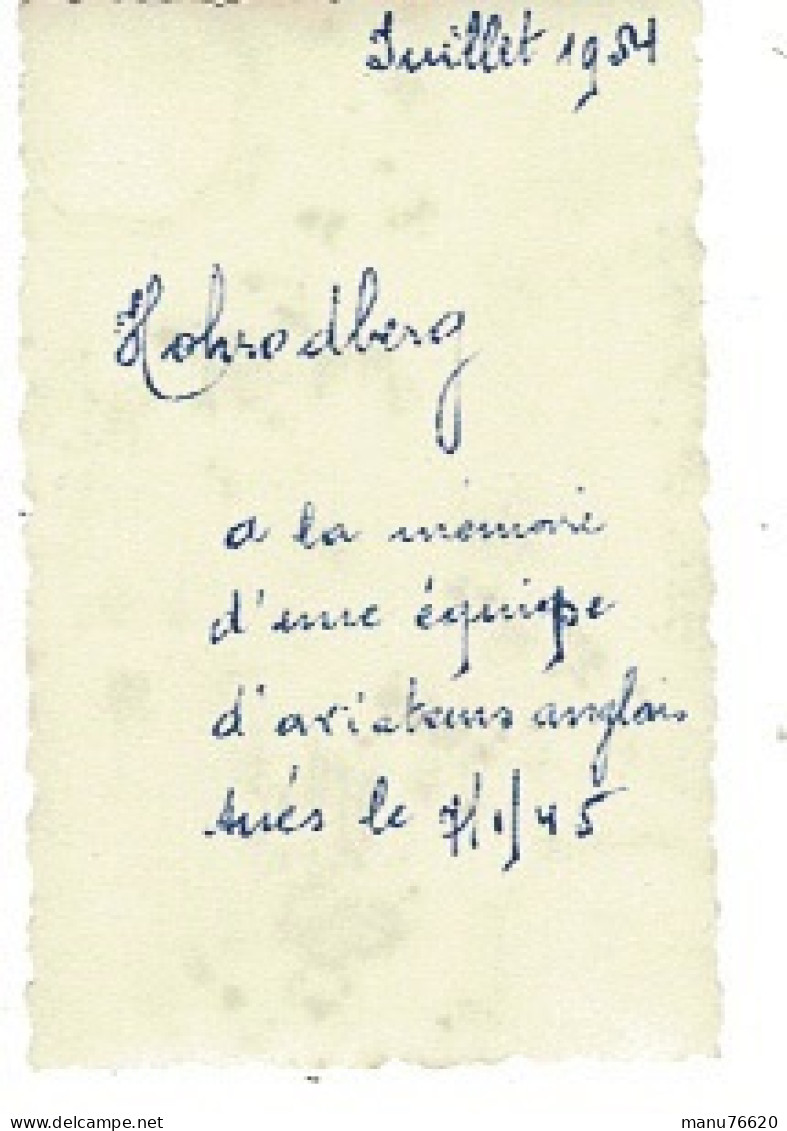 Juillet 1954
Hohrodberg
a la mémoire
d'une équipe
d'aviateurs anglais
tués le 7/1/45
delcampe.net
manu76620